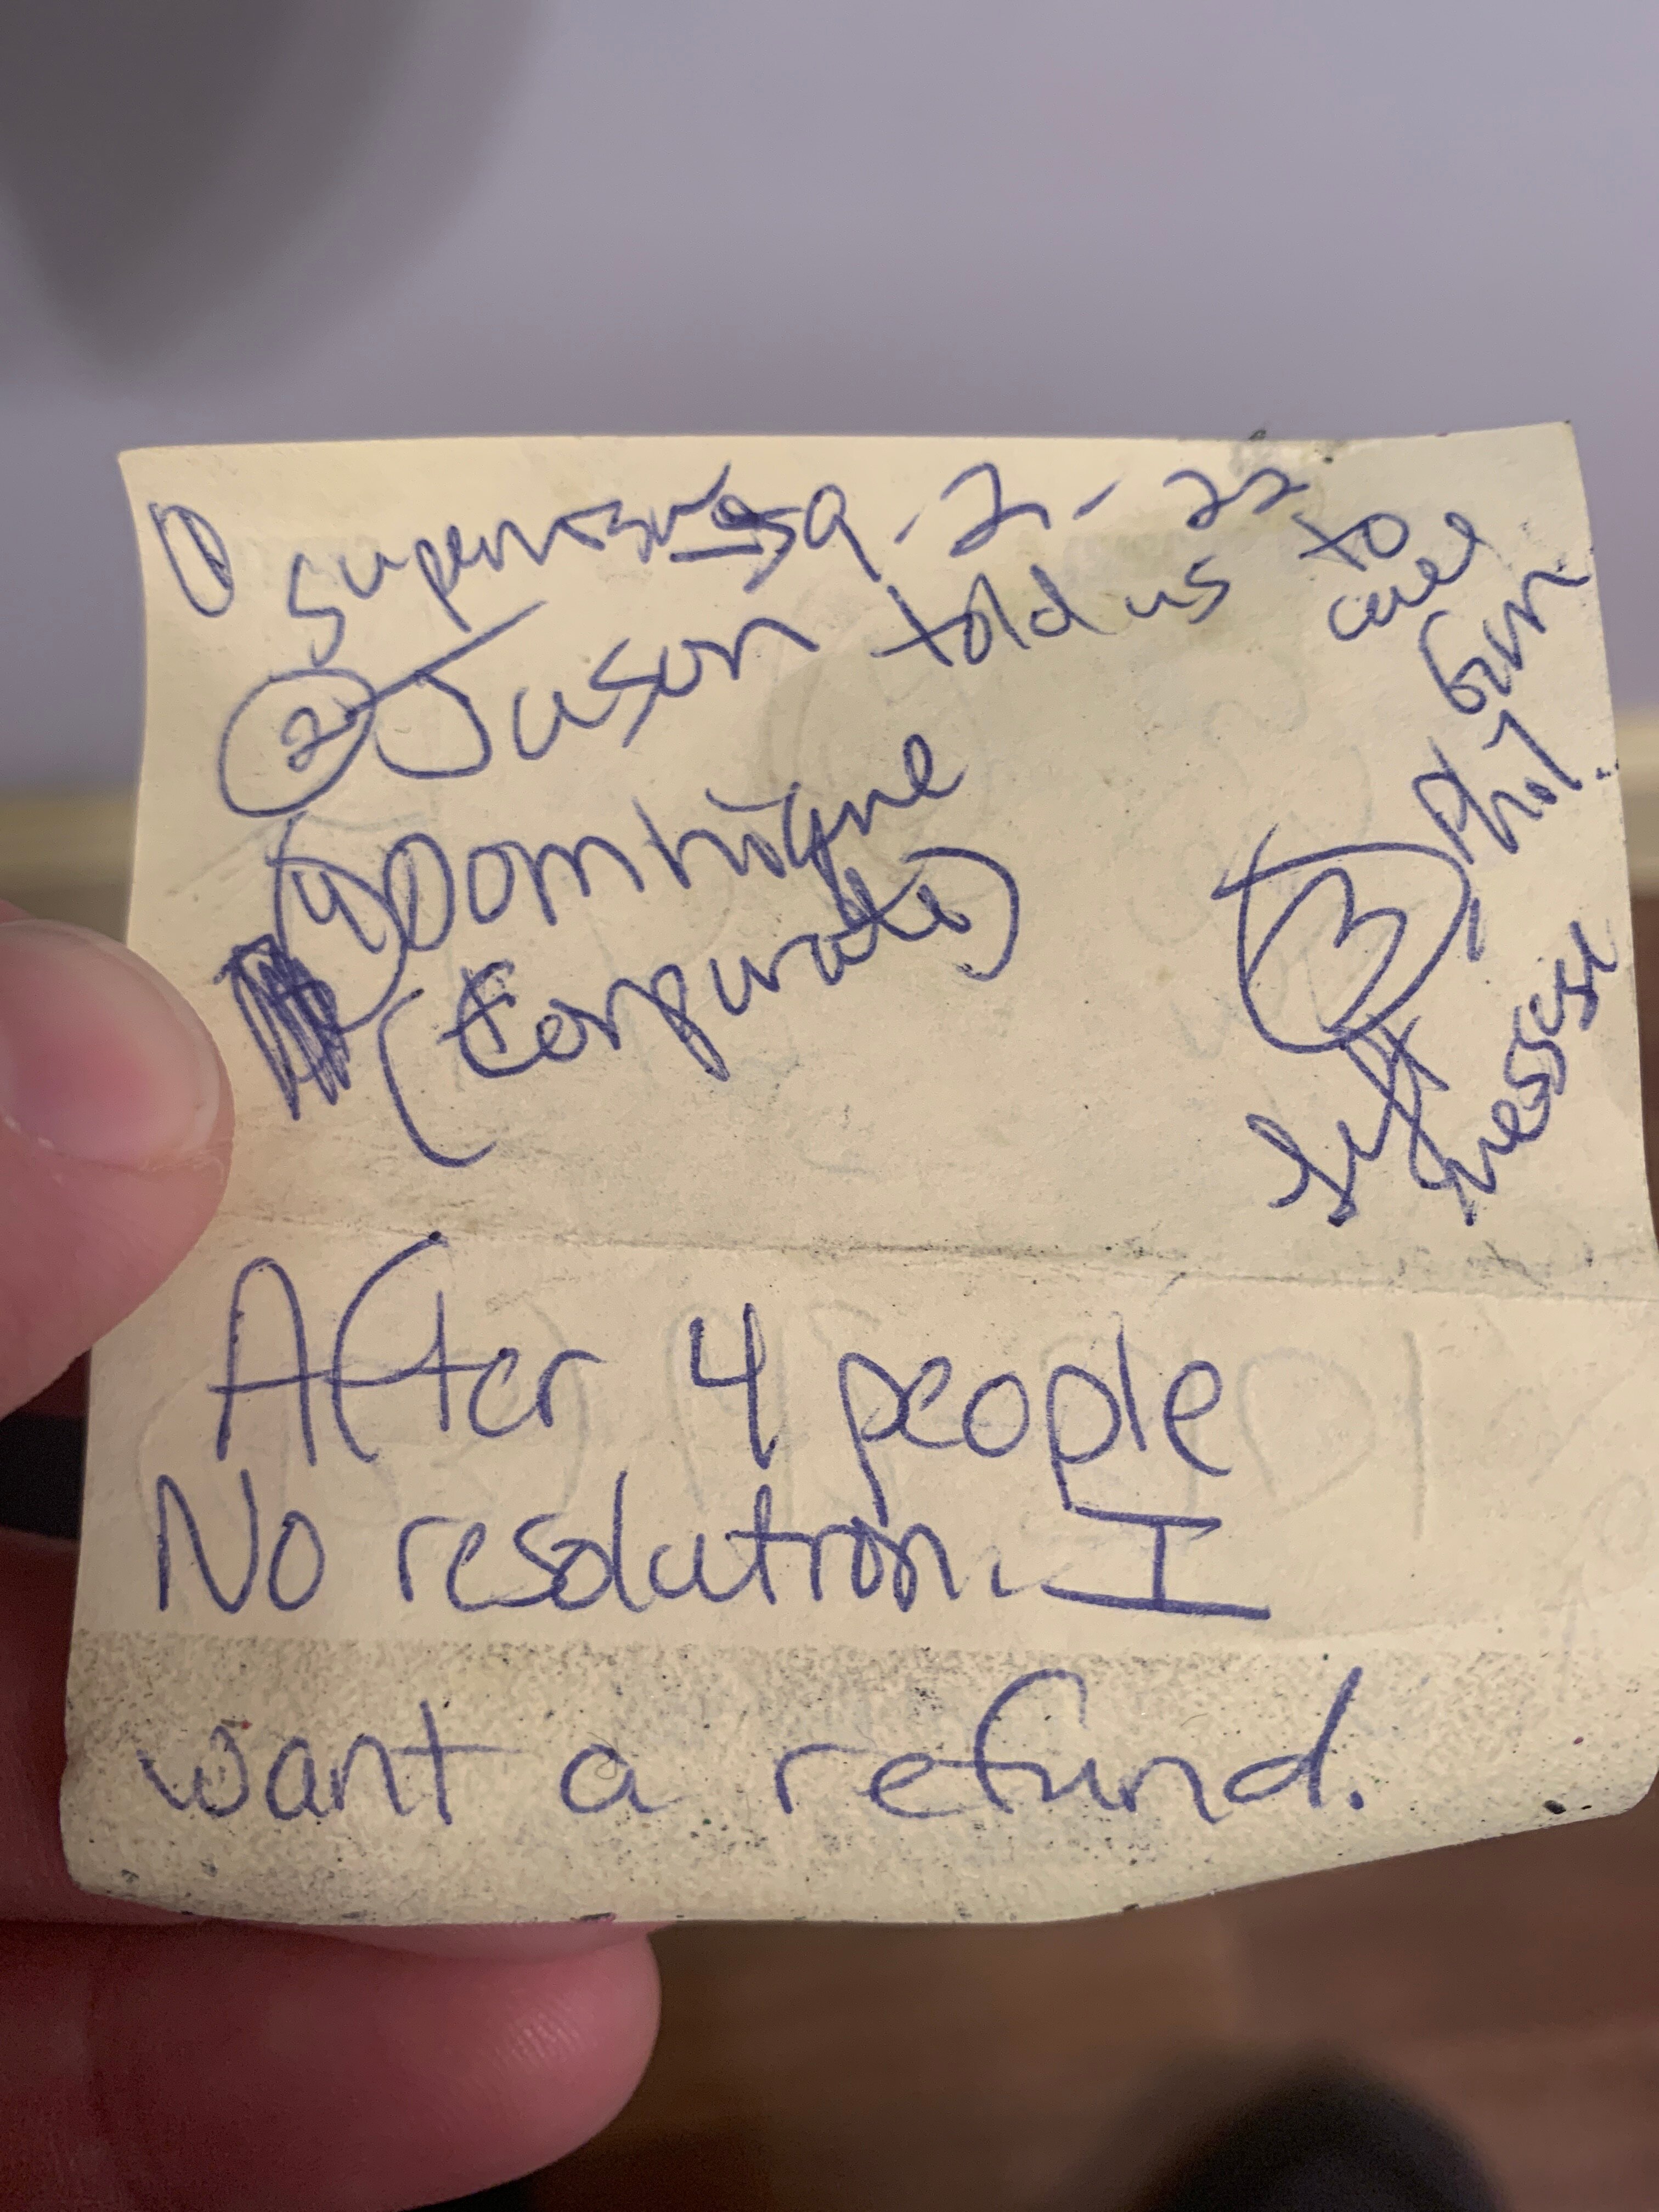 ① Supervisor 9-21-22
② Jason told us to
call
③ Phil GM
left
message
④ Dominique
(Corporate)
After 4 people
No resolution. I
want a refund.